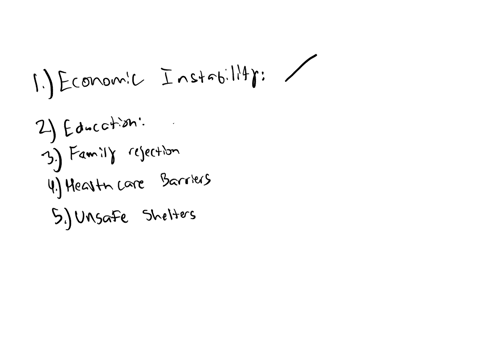 1.) Economic Instability:
2) Education:
3.) Family rejection
4.) Healthcare Barriers
5.) Unsafe Shelters